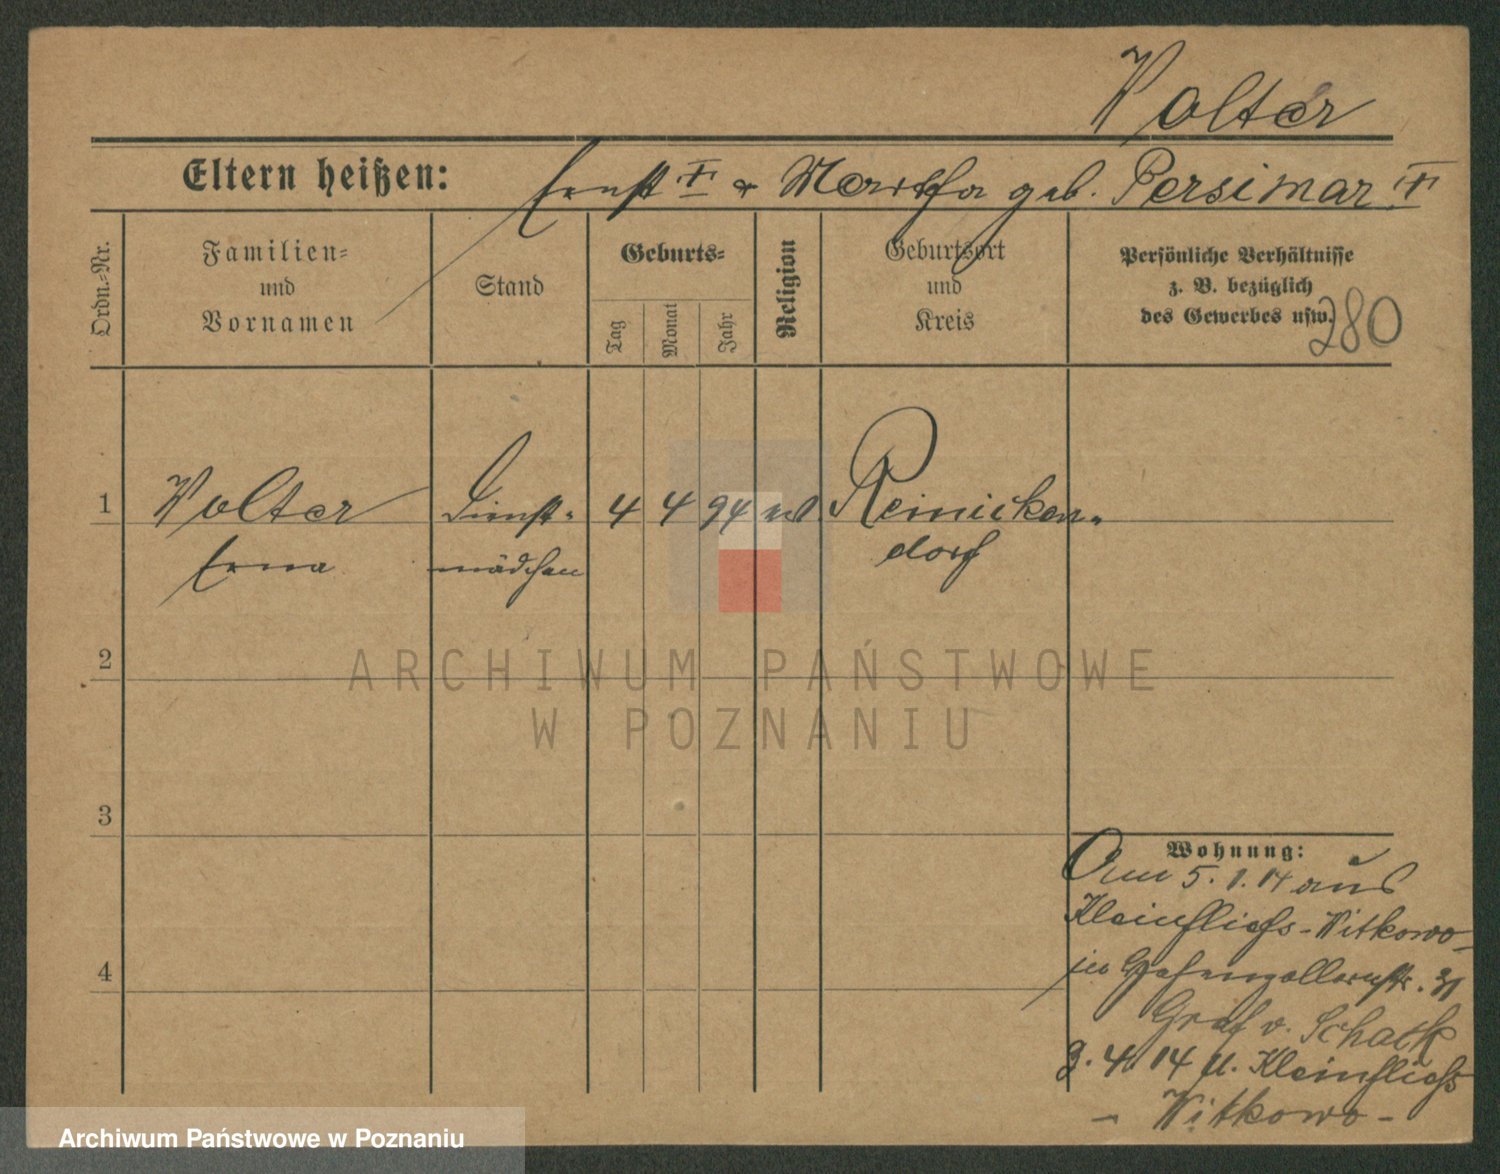 Wolter
Eltern heißen: Ernst † & Martha geb. Persimar †
Ordn.-Nr.
Familien- und Vornamen
Stand
Geburts-
Tag
Monat
Jahr
Religion
Geburtsort und Kreis
Persönliche Verhältnisse
z. B. bezüglich
des Gewerbes usw.
280
1 Wolter Dienst- 4 4 94 Reinicken-
Erna mädchen dorf
2
3
4
Wohnung:
Am 5.1.14 aus
Kleinfließ-Witkowo-
in Hohenzollernstr. 31
Graf v. Schack
3.4.14 n. Kleinfließ
- Witkowo -
ARCHIWUM PAŃSTWOWE
W POZNANIU
Archiwum Państwowe w Poznaniu